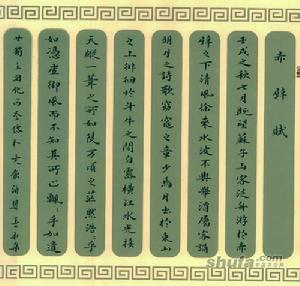 赤壁賦
壬戌之秋七月既望蘇子与客泛舟游於赤
壁之下清風徐來水波不興舉酒属客誦
明月之詩歌窈窕之章少焉月出於東山
之上徘徊於斗牛之間白露橫江水光接
天縱一葦之所如陵万頃之茫然浩々乎
如憑虛御風而不知其所止飄々乎如遺
世獨立羽化而登僊
shufa.com